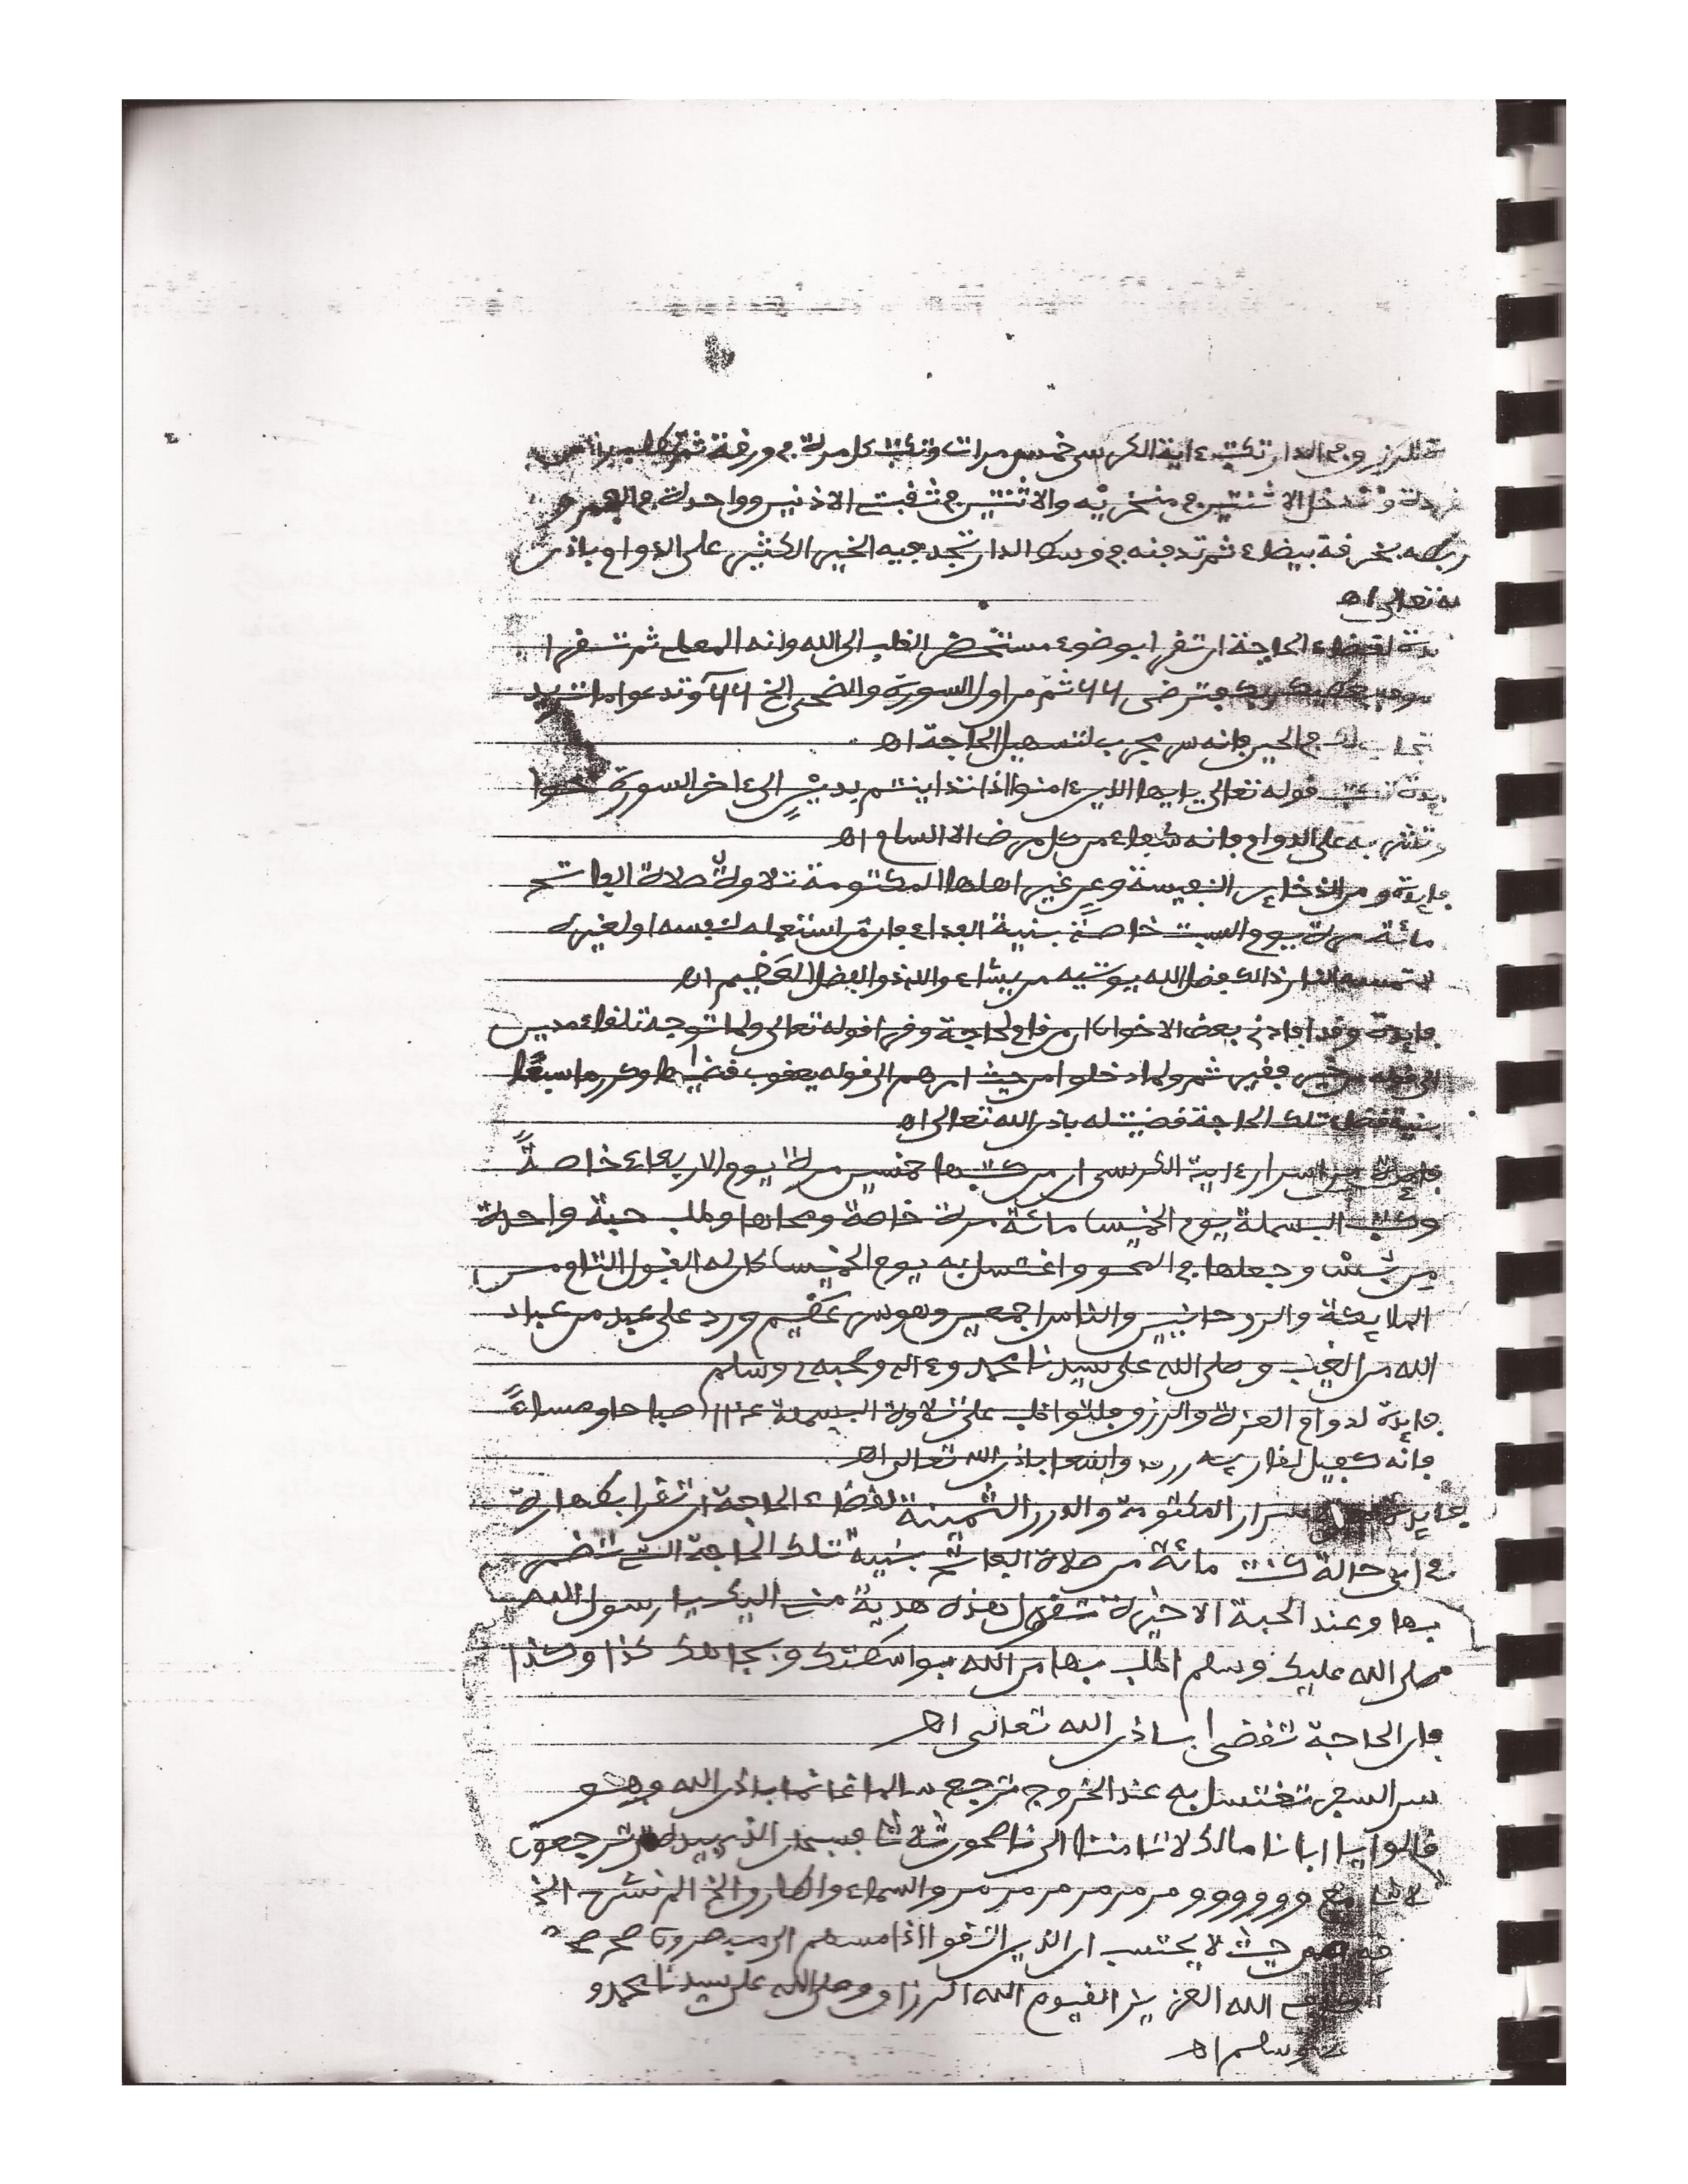 للرزق وفى الدار تكتب ءاية الكرسى خمس مرات وتكتب كل مرة فى ورقة ثم
وتدخل الاثنتين فى منخريه والاثنتين فى ثقبت الاذنين وواحدة فى الفم و
ربطه بخرفة بيضاء ثم تدفنه فى وسط الدار تجد فيه الخير الكثير على الدوام باذن
له تعالى اه
لقضاء الحاجة ان تقرا بوضوء مستحضر القلب الى الله وانه المعطى ثم تقرا
ولسوف يعطيك ربك فترضى ٦٦ ثم من اول السورة والضحى الخ ٦٦ وتدعوا ما تريد
تجاب لك فى الحين فانه سر مجرب لتسهيل الحاجة اه
تكتب قوله تعالى يايها الذين ءامنوا اذا تداينتم بدين الى ءاخر السورة
وتشربه على الدوام فانه شفاء من كل مرض الا السام اه
فايدة ومن الذخاير النفيسة وعن غير اهلها المكتومة تلاوة صلاة الفاتح
مائة مرة يوم السبت خاصة بنية الفداء فان من استعمله لنفسه او لغيره
لا تمسه النار ذالك فضل الله يوتيه من يشاء والله ذو الفضل العظيم اه
فايدة وقد افادنى بعض الاخوان ان من قام لحاجة وقرا قوله تعالى ولما توجه تلقاء مدين
الى قوله من خير فقير ثم ولما دخلوا من حيث امرهم الى قوله يعقوب قضيها وكررها سبعا
بنية قضاء تلك الحاجة قضيت له باذن الله تعالى اه
فايدة من اسرار ءاية الكرسى ان من كتبها خمسين مرة يوم الاربعاء خاصة
وكتب البسملة يوم الخميس مائة مرة خاصة ومحاها وطلب حبة واحدة
من وجعلها فى المحو واغتسل به يوم الخميس كان له القبول التام من
الملايكة والروحانيين والناس اجمعين وهو سر عظيم ورد على عبد من عباد
الله من الغيب وصلى الله على سيدنا محمد وءاله وصحبه وسلم
فايدة لدوام العزة والرزق فليواظب على تلاوة البسملة صباحا ومساء
فانه كفيل لقاريه باذن الله تعالى اه
فايدة سرار المكتومة والدرر الثمينة لقضاء الحاجة ان تقرا بطهارة
فى اى حالة كنت مائة من صلاة الفاتح بنية تلك الحاجة التى تضمر
بها وعند الحبة الاخيرة تقول هذه هدية منى اليك يا رسول الله
صلى الله عليك وسلم اطلب بها من الله بواسطتك وبجاهك كذا وكذا
فان الحاجة تقضى باذن الله تعالى اه
سر السفر تغتسل به عند الخروج ترجع سالما غانما باذن الله وهو
قالوا يا ابانا مالك لا تامنا الى ناصحون فسبحان الذى بيده ترجعون
و و و و و و مر مر مر مر مر مر والسماء والطارق الخ الم نشرح الخ
من حيث لا يحتسب ان الذين اتقوا اذا مسهم الى مبصرون صح صح
الله العزيز القيوم الله الرزاق وصلى الله على سيدنا محمد و
وسلم اه